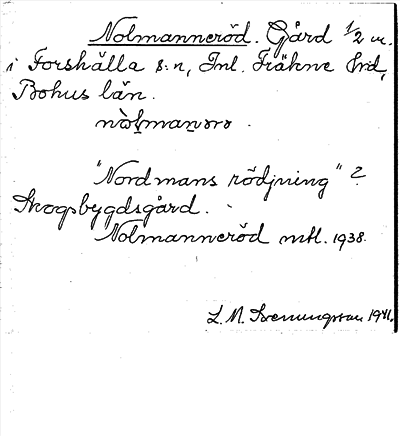 Nolmanneröd. Gård 1/2 m.
i Forshälla s:n, Inl. Fräkne hd,
Bohus län.
"Nordmans rödjning" ?
Skogsbygdsgård.
Nolmanneröd mtl. 1938.
L. M. Svenungsson 1941.